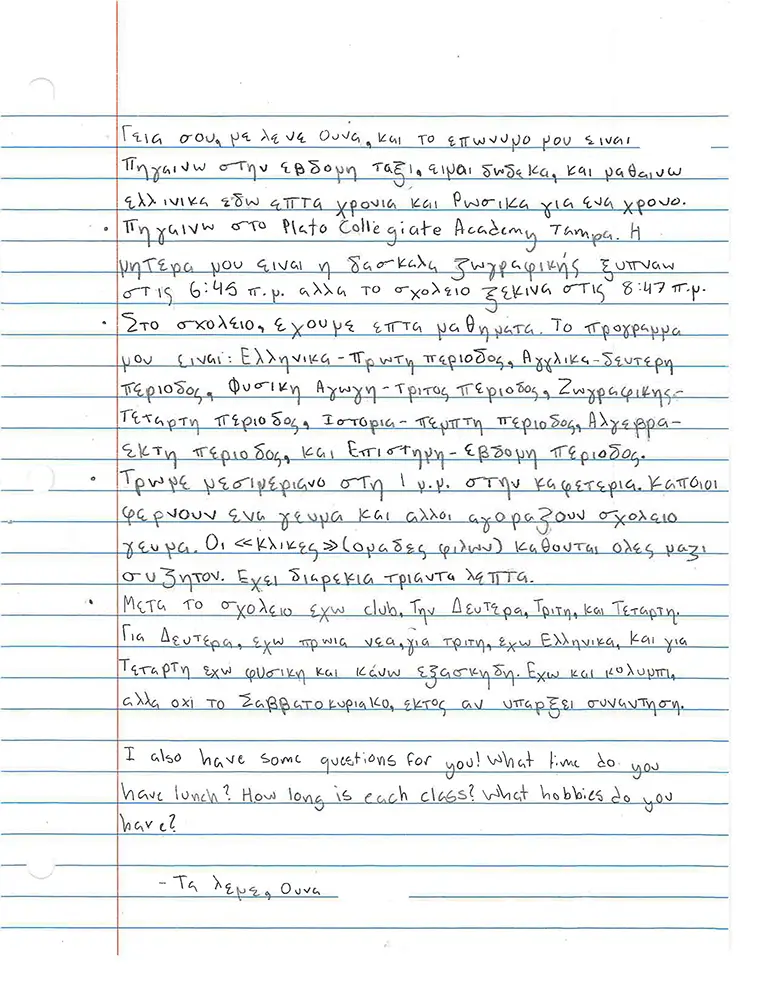 Γεια σου, με λενε Ουνά, και το επωνυμο μου ειναι
Πηγαινω στην εβδομη ταξι, ειμαι δωδεκα, και μαθαινω
ελλινικα εδω επτα χρονια και Ρωσικα για ενα χρονο.
• Πηγαινω στο Plato Collegiate Academy Tampa. Η
μητερα μου ειναι η δασκαλα ζωγραφικής ξυπναω
στις 6:45 π.μ. αλλα το σχολειο ξεκινα στις 8:47 π.μ.
• Στο σχολειο, εχουμε επτα μαθηματα. Το προγραμμα
μου ειναι: Ελληνικα - πρωτη περιοδος, Αγγλικα - δευτερη
περιοδος, Φυσικη Αγωγη - τριτος περιοδος, Ζωγραφικης -
τεταρτη περιοδος, Ιστορια - πεμπτη περιοδος, Αλγεβρα -
εκτη περιοδος, και Επιστημη - εβδομη περιοδος.
• Τρωμε μεσιμεριανο στη 1 μ.μ. στην καφετερια. Καποιοι
φερνουν ενα γευμα και αλλοι αγοραζουν σχολειο
γευμα. Οι «κλικες» (ομαδες φιλων) καθονται ολες μαζι
συζητον. Εχει διαρεκια τριαντα λεπτα.
• Μετα το σχολειο εχω club, Την Δευτερα, Τριτη, και Τεταρτη.
Για Δευτερα, εχω πρωια νεα, για τριτη, εχω Ελληνικα, και για
Τεταρτη εχω φυσικη και κάνω εξασκηδη. Εχω και κολυμπι,
αλλα οχι το Σαββατοκυριακο, εκτος αν υπαρξει συναντηση.
I also have some questions for you! What time do you
have lunch? How long is each class? What hobbies do you
have?
- Τα λεμε, Ουνα